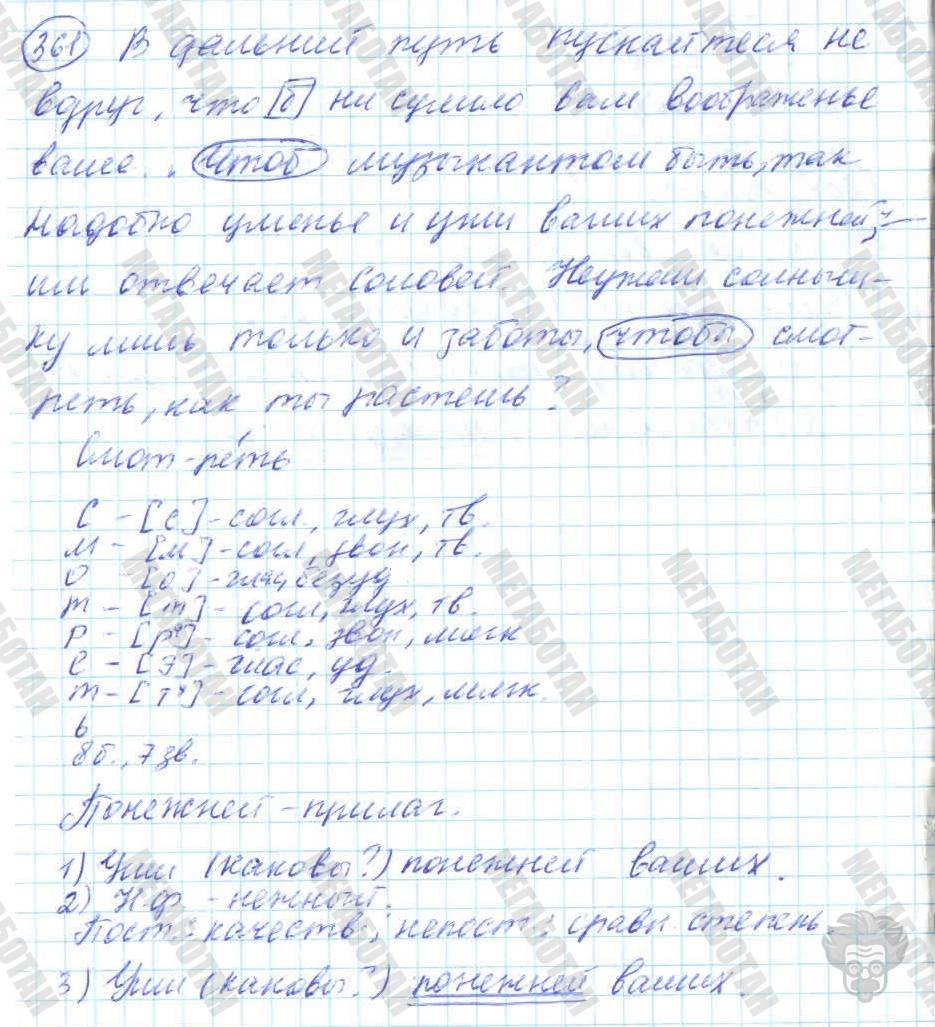 361 В дальний путь пускайтеся не
вдруг, что [б] ни сулило вам воображенье
ваше. Чтоб музыкантом быть, так
надобно уменье и уши ваших понежней,-
им отвечает Соловей. Неужели солныш-
ку лишь только и заботы, чтобы смот-
реть, как ты растешь?
Смот-ре́ть
С - [с] - согл, глух, тв.
м - [м] - согл, звон, тв.
о - [о] - глас, безуд
т - [т] - согл, глух, тв.
р - [р'] - согл, звон, мягк
е - [э] - глас, уд.
т - [т'] - согл, глух, мягк.
ь
8б., 7зв.
Понежней - прилаг.
1) Уши (каковы?) понежней ваших.
2) Н.ф. - нежный.
Пост.: качеств.; непост.: сравн степень.
3) Уши (каковы?) понежней ваших.
МЕГАБОТАН